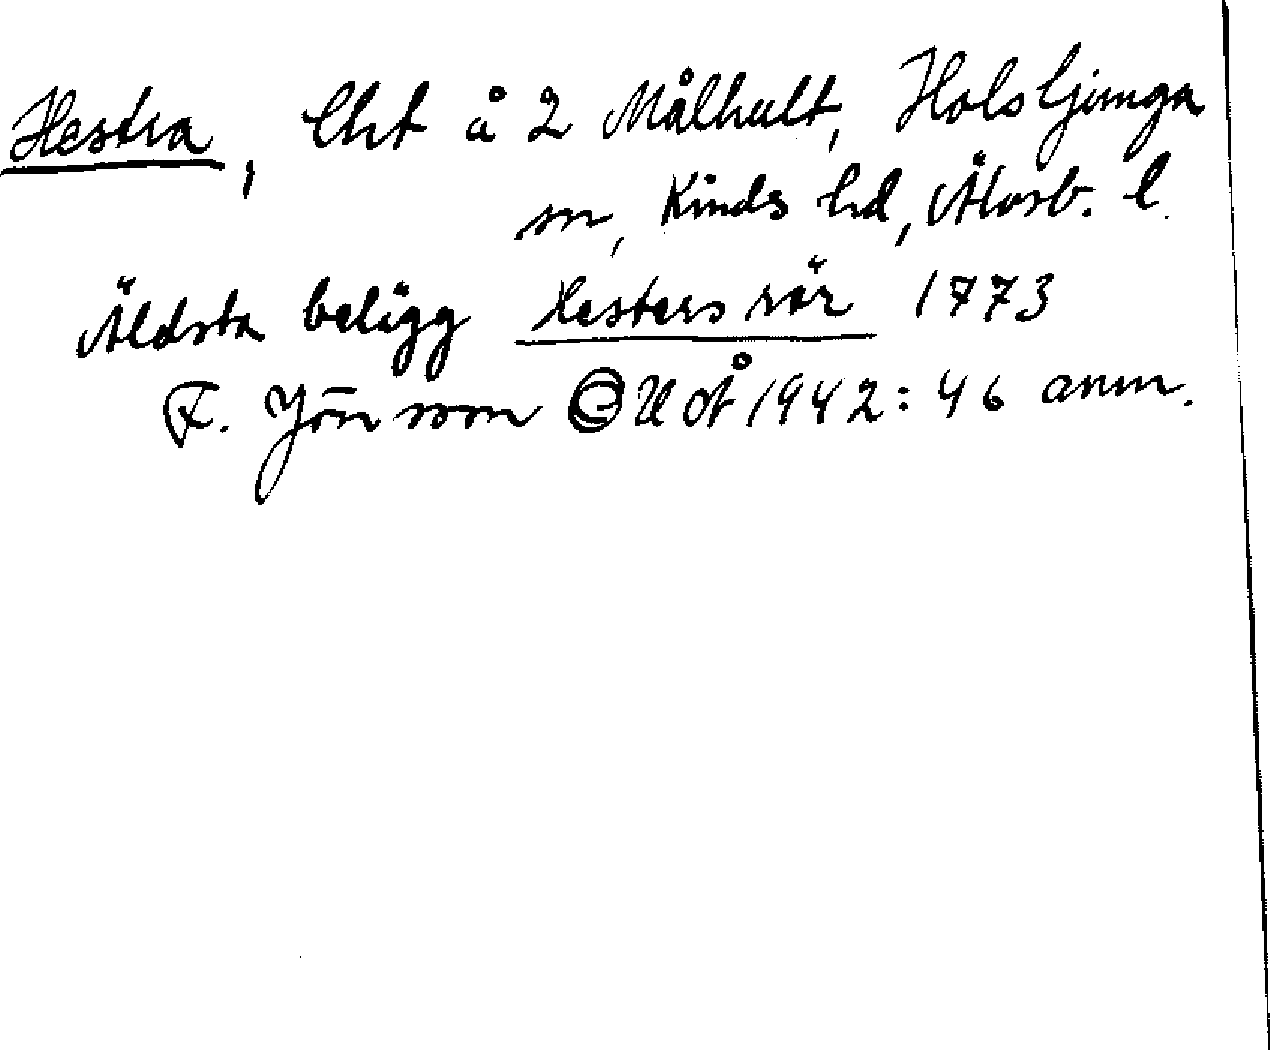 Hestra, lht å 2 Målhult, Holsljunga
sn, Kinds hd, Älvsb. l.
Äldsta belägg Hesters rör 1773
F. Jönsson OUoÅ 1942: 46 anm.